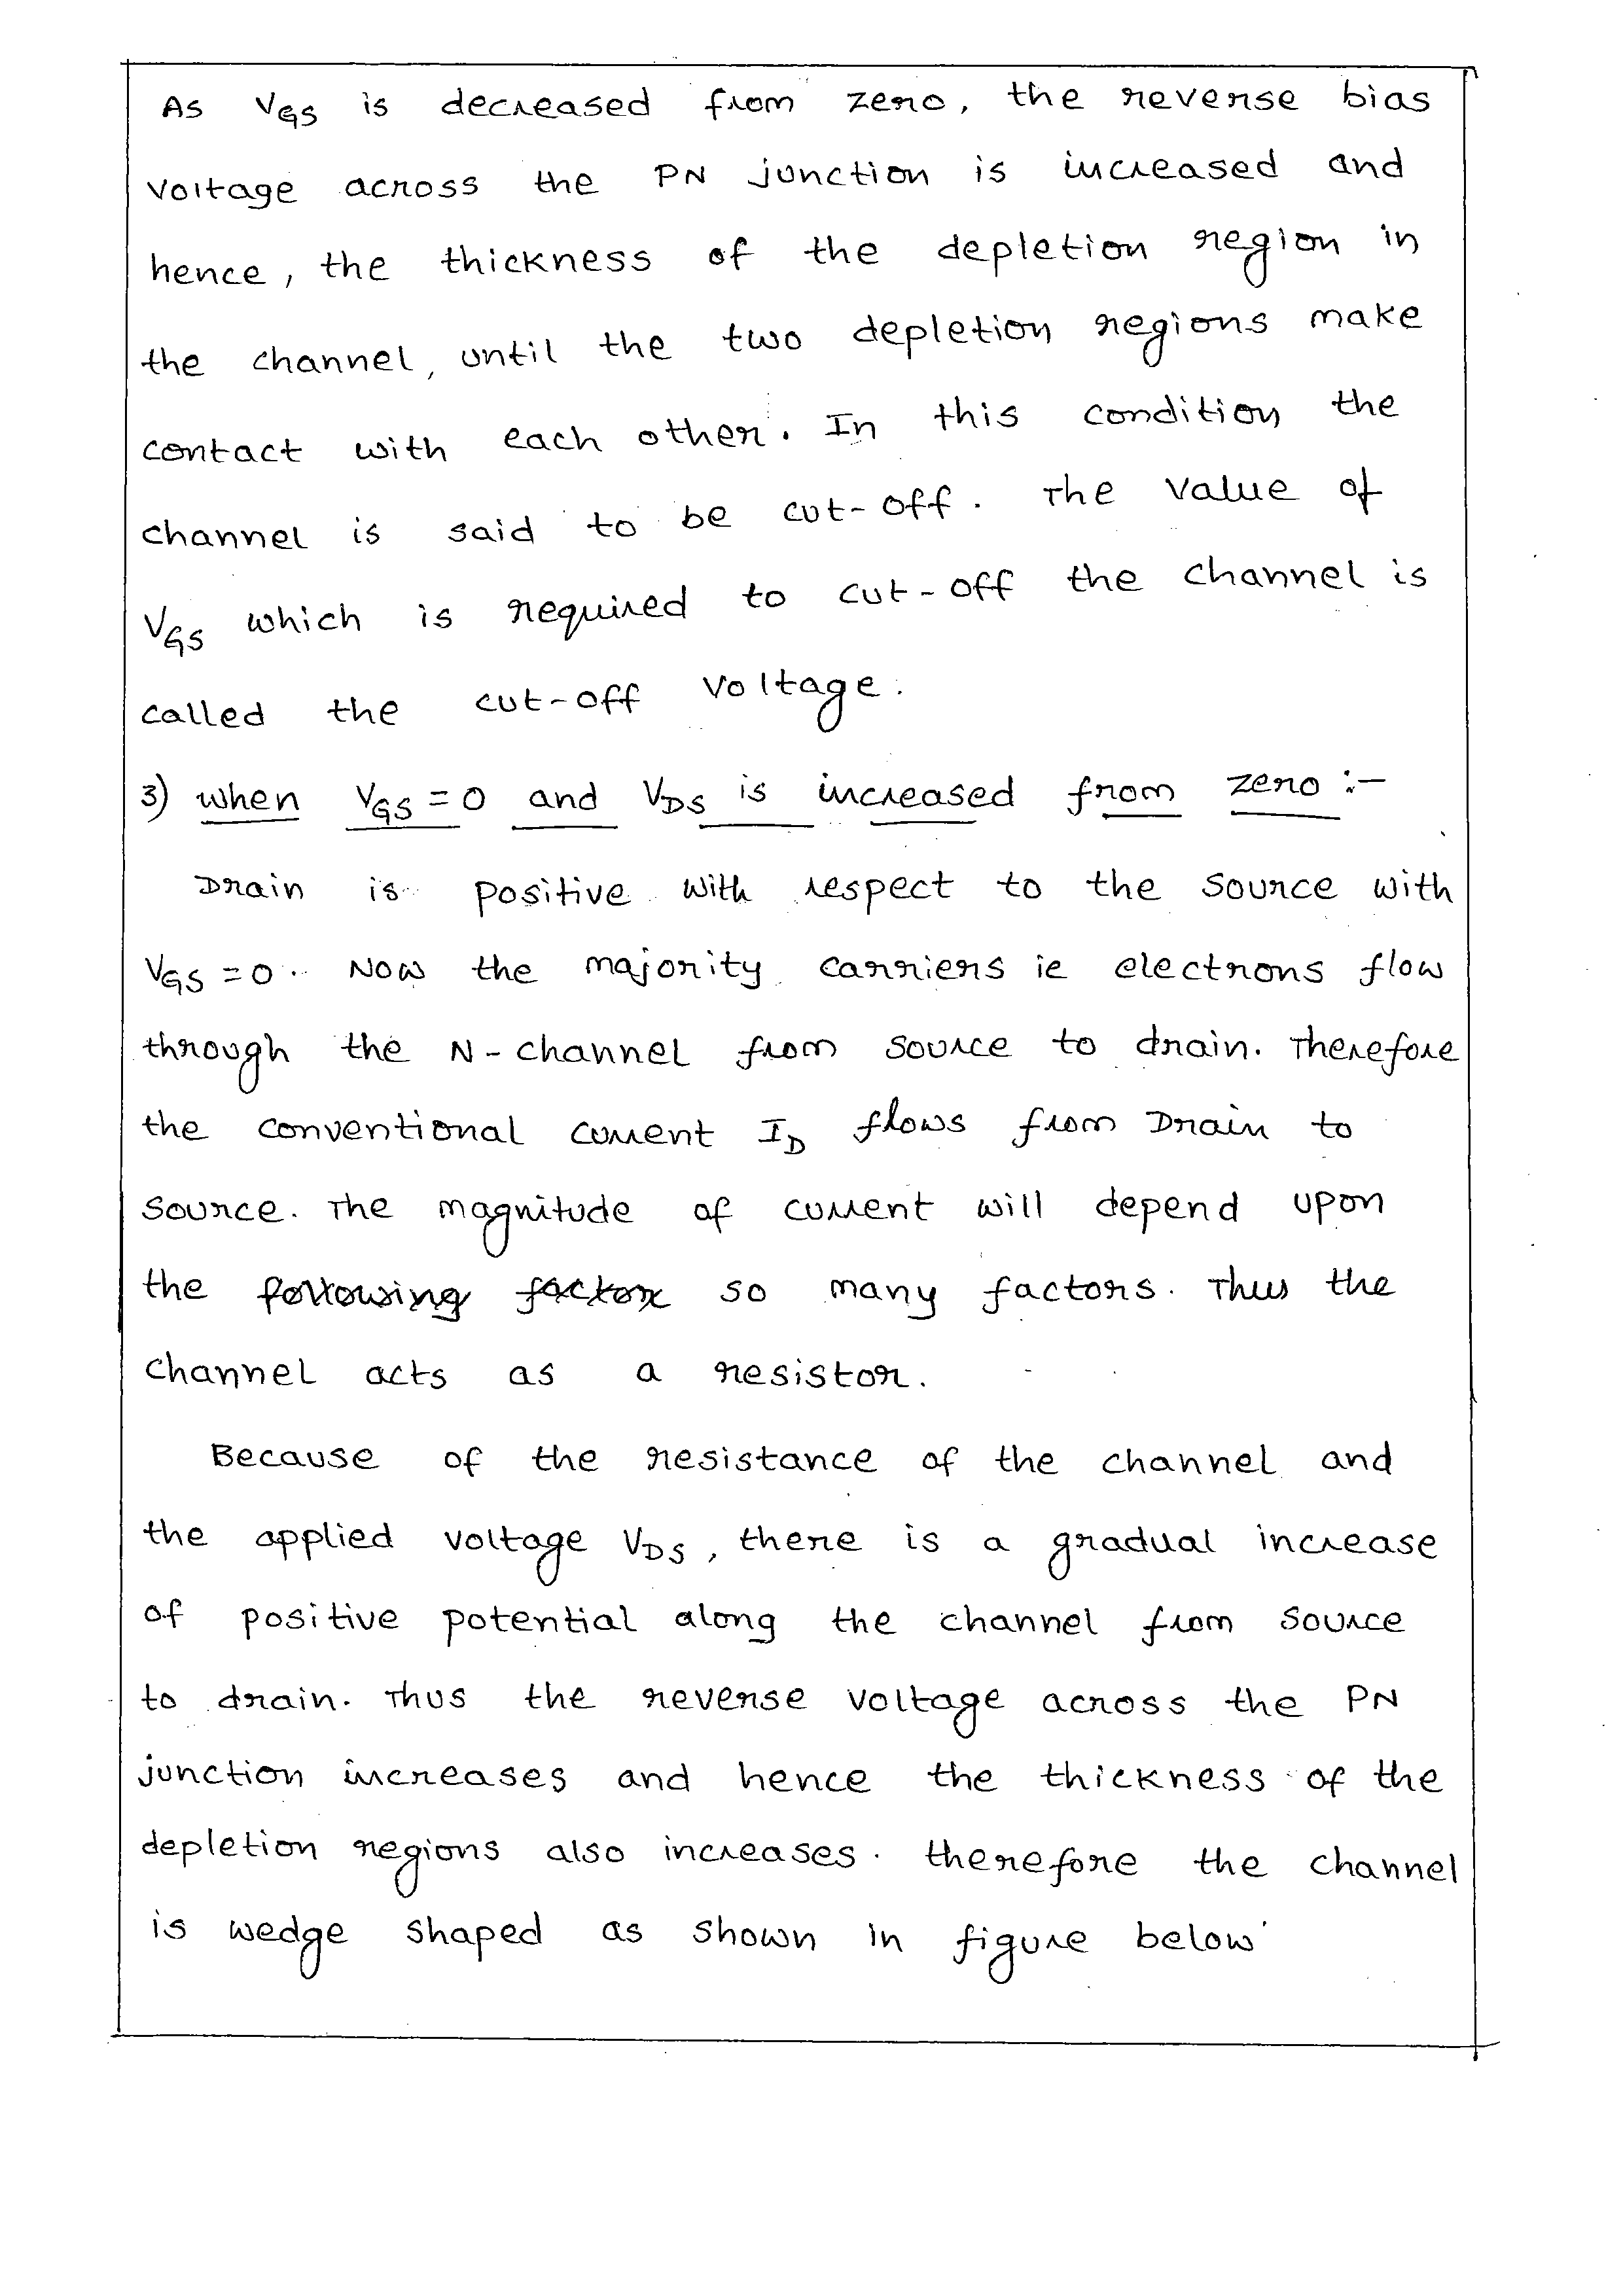 As VGS is decreased from zero, the reverse bias
voltage across the PN junction is increased and
hence, the thickness of the depletion region in
the channel, until the two depletion regions make
contact with each other. In this condition the
channel is said to be cut-off. The value of
VGS which is required to cut-off the channel is
called the cut-off voltage.
3) when VGS = 0 and VDS is increased from zero :-
Drain is positive with respect to the source with
VGS = 0. Now the majority carriers ie electrons flow
through the N-channel from source to drain. Therefore
the conventional current ID flows from Drain to
source. The magnitude of current will depend upon
the following factor so many factors. Thus the
channel acts as a resistor.
Because of the resistance of the channel and
the applied voltage VDS, there is a gradual increase
of positive potential along the channel from source
to drain. Thus the reverse voltage across the PN
junction increases and hence the thickness of the
depletion regions also increases. therefore the channel
is wedge shaped as shown in figure below